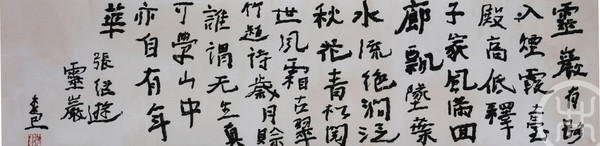 靈巖有路
入煙霞臺
殿高低釋
子家風滿回
廊飄墜葉
水流絕澗泛
秋花青松閱
世風霜古翠
竹題詩歲月賒
誰謂无生真
可學山中
亦自有年
華
張繼遊
靈巖